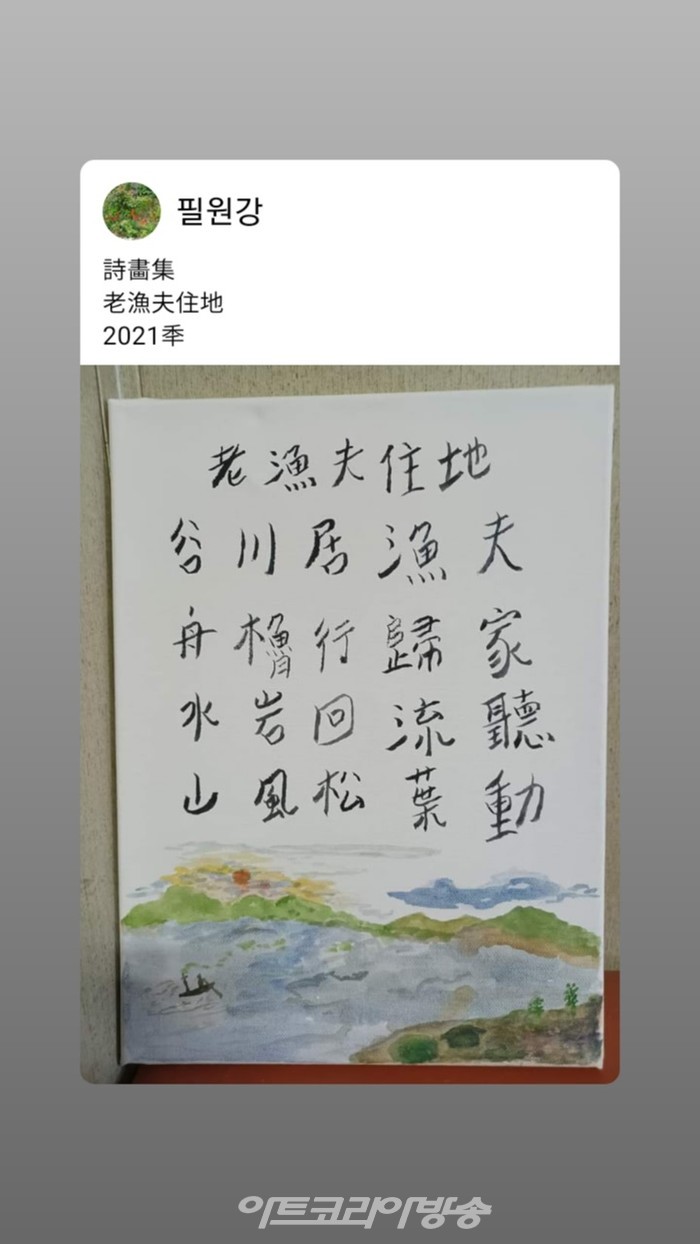 필원강
詩畫集
老漁夫住地
2021秊
老漁夫住地
谷川居漁夫
舟櫓行歸家
水岩回流聽
山風松葉動
아트코리아방송